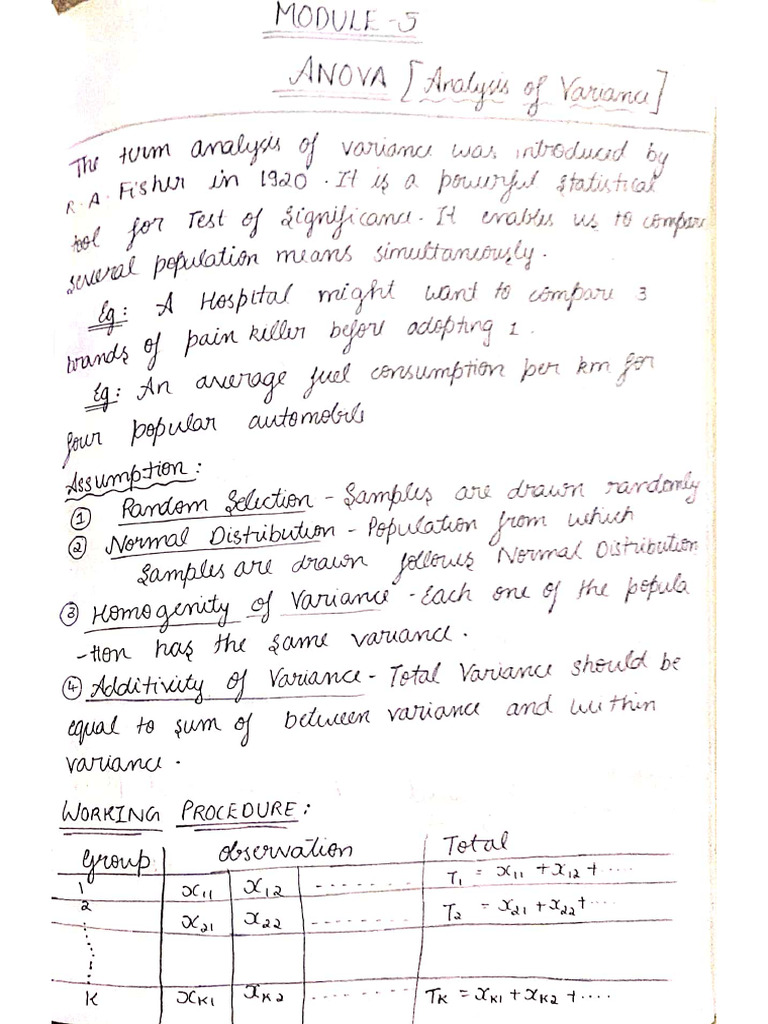 MODULE-5
ANOVA [Analysis of Variance]
The term analysis of variance was introduced by
R.A. Fisher in 1920. It is a powerful statistical
tool for Test of Significance. It enables us to compare
several population means simultaneously.
Eg: A Hospital might want to compare 3
brands of pain killer before adopting 1.
Eg: An average fuel consumption per km for
four popular automobile
Assumption:
① Random Selection - Samples are drawn randomly
② Normal Distribution - Population from which
Samples are drawn follows Normal Distribution
③ Homogenity of Variance - Each one of the popula
-tion has the same variance.
④ Additivity of Variance - Total Variance should be
equal to sum of between variance and within
variance.
WORKING PROCEDURE:
Group observation Total
1 x11 x12 ........ T1 = x11 + x12 + ....
2 x21 x22 ........ T2 = x21 + x22 + ....
K xK1 xK2 ........ TK = xK1 + xK2 + ....